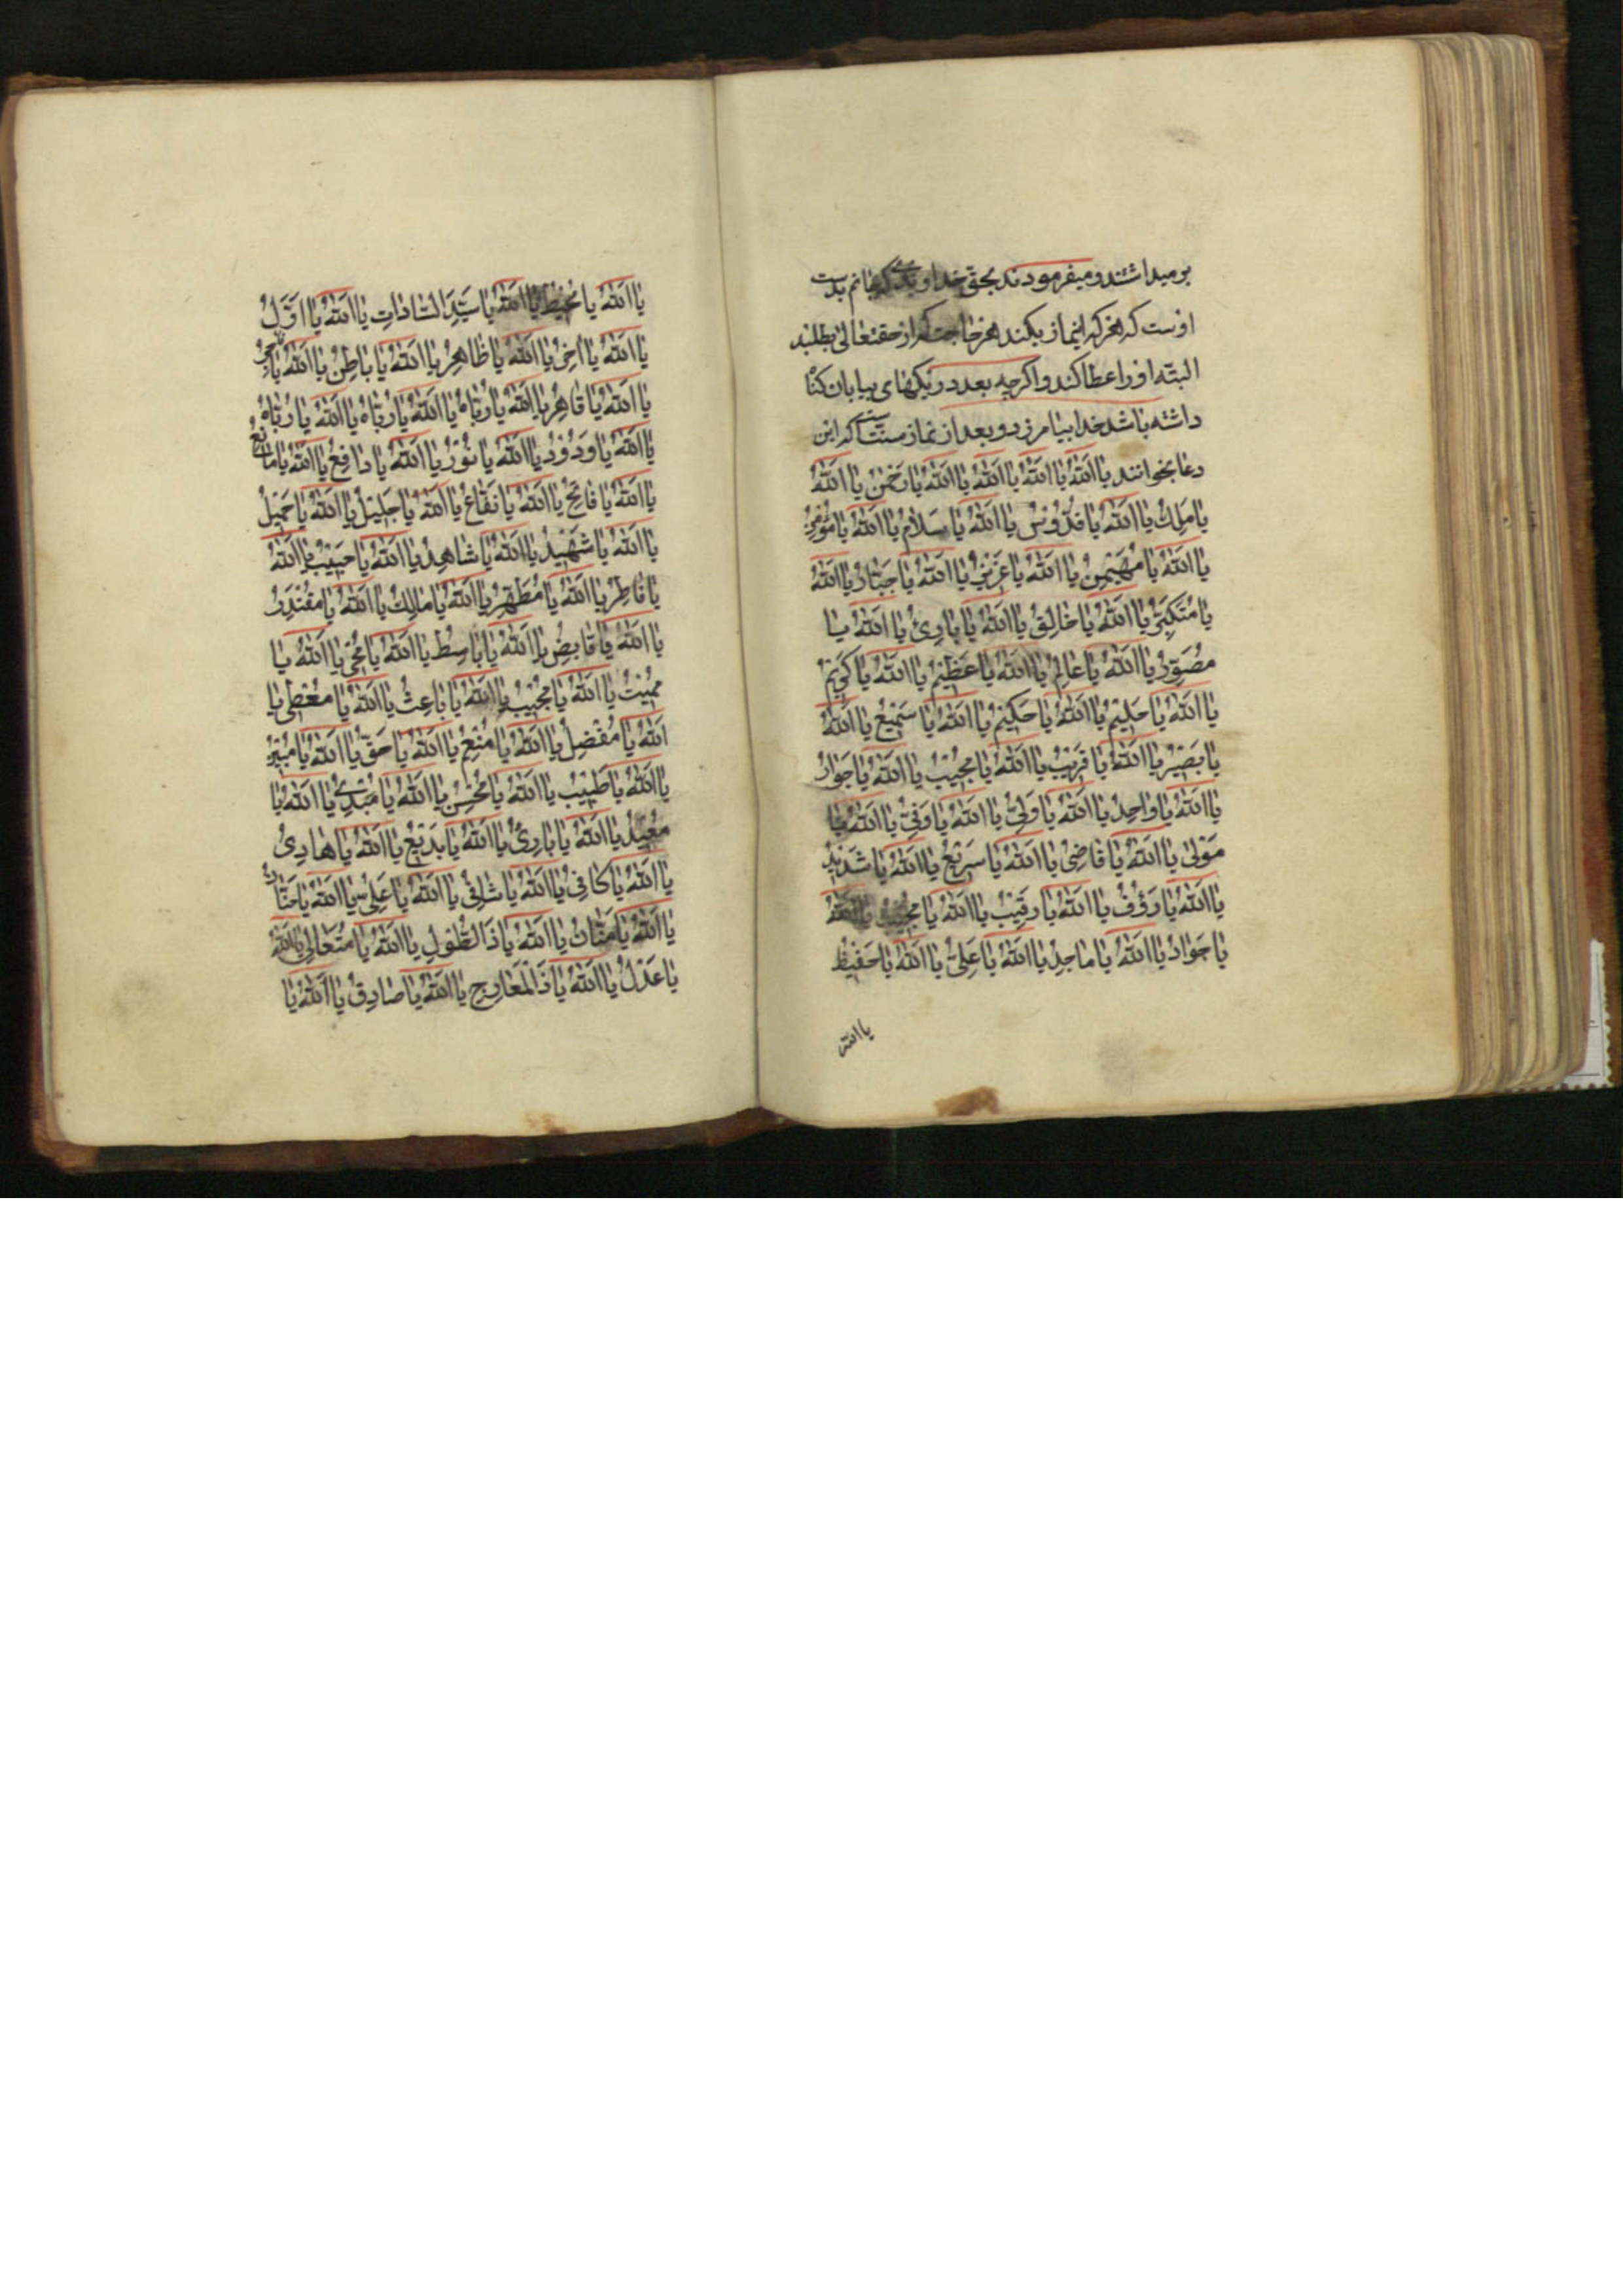 بر میداشتند و میفرمودند بحق خداوندی که جانم بدست
اوست که هر که اینماز بکند هر حاجت که از حقتعالی بطلبد
البته او را عطا کند و اگر چه بعدد ریکهای بیابان کناه
داشته باشد خدا بیامرزد و بعد از نماز سنتست که این
دعا بخوانند یا اَللّٰهُ یا اَللّٰهُ یا اَللّٰهُ یا اَللّٰهُ یا رَحْمٰنُ یا اَللّٰهُ
یا مَلِكُ یا اَللّٰهُ یا قُدُّوْسُ یا اَللّٰهُ یا سَلامُ یا اَللّٰهُ یا مُؤْمِنُ
یا اَللّٰهُ یا مُهَيْمِنُ یا اَللّٰهُ یا عَزِيْزُ یا اَللّٰهُ یا جَبّارُ یا اَللّٰهُ
یا مُتَكَبِّرُ یا اَللّٰهُ یا خالِقُ یا اَللّٰهُ یا بارِئُ یا اَللّٰهُ یا
مُصَوِّرُ یا اَللّٰهُ یا عالِمُ یا اَللّٰهُ یا عَظِيْمُ یا اَللّٰهُ یا كَرِيْمُ
یا اَللّٰهُ یا حَلِيْمُ یا اَللّٰهُ یا حَكِيْمُ یا اَللّٰهُ یا سَمِيْعُ یا اَللّٰهُ
یا بَصِيْرُ یا اَللّٰهُ یا قَرِيْبُ یا اَللّٰهُ یا مُجِيْبُ یا اَللّٰهُ یا جَوادُ
یا اَللّٰهُ یا واحِدُ یا اَللّٰهُ یا وَلِيُّ یا اَللّٰهُ یا وَفِيُّ یا اَللّٰهُ یا
مَوْلىٰ یا اَللّٰهُ یا قاضِیُ یا اَللّٰهُ یا سَرِيْعُ یا اَللّٰهُ یا شَدِيْدُ
یا اَللّٰهُ یا رَؤُفُ یا اَللّٰهُ یا رَقِيْبُ یا اَللّٰهُ یا یا اَللّٰهُ
یا جَوادُ یا اَللّٰهُ یا ماجِدُ یا اَللّٰهُ یا عَلِيُّ یا اَللّٰهُ یا حَفِيْظُ
یا الله
یا اَللّٰهُ یا مُحِيْطُ یا اَللّٰهُ یا سَيِّدَ السّاداتِ یا اَللّٰهُ یا اَوَّلُ
یا اَللّٰهُ یا اٰخِرُ یا اَللّٰهُ یا ظاهِرُ یا اَللّٰهُ یا باطِنُ یا اَللّٰهُ یا
یا اَللّٰهُ یا قاهِرُ یا اَللّٰهُ یا رَبّاهُ یا اَللّٰهُ یا رَبّاهُ یا اَللّٰهُ یا رَبّاهُ
یا اَللّٰهُ یا وَدُوْدُ یا اَللّٰهُ یا نُوْرُ یا اَللّٰهُ یا دافِعُ یا اَللّٰهُ یا مانِعُ
یا اَللّٰهُ یا فاتِحُ یا اَللّٰهُ یا نَفّاعُ یا اَللّٰهُ یا جَلِيْلُ یا اَللّٰهُ یا جَمِيْلُ
یا اَللّٰهُ یا شَهِيْدُ یا اَللّٰهُ یا شاهِدُ یا اَللّٰهُ یا حَبِيْبُ یا اَللّٰهُ
یا فاطِرُ یا اَللّٰهُ یا مُطَهِّرُ یا اَللّٰهُ یا مالِكُ یا اَللّٰهُ یا مُقْتَدِرُ
یا اَللّٰهُ یا قابِضُ یا اَللّٰهُ یا باسِطُ یا اَللّٰهُ یا مُحْیِ یا اَللّٰهُ یا
مُمِيْتُ یا اَللّٰهُ یا مُجِيْبُ یا اَللّٰهُ یا باعِثُ یا اَللّٰهُ یا مُعْطِی یا
اَللّٰهُ یا مُفْضِلُ یا اَللّٰهُ یا مُنْعِمُ یا اَللّٰهُ یا حَقُّ یا اَللّٰهُ یا مُبِيْنُ
یا اَللّٰهُ یا طَبِيْبُ یا اَللّٰهُ یا مُحْسِنُ یا اَللّٰهُ یا مُبْدِئُ یا اَللّٰهُ یا
مُعِيْدُ یا اَللّٰهُ یا بارِئُ یا اَللّٰهُ یا بَدِيْعُ یا اَللّٰهُ یا هادِیُ
یا اَللّٰهُ یا كافِیُ یا اَللّٰهُ یا شافِیُ یا اَللّٰهُ یا عَلِیُّ یا اَللّٰهُ یا حَنّانُ
یا اَللّٰهُ یا مَنّانُ یا اَللّٰهُ یا ذَا الطَّوْلِ یا اَللّٰهُ یا مُتَعالِی یا اَللّٰهُ
یا عَدْلُ یا اَللّٰهُ یا ذَا الْمَعارِجِ یا اَللّٰهُ یا صادِقُ یا اَللّٰهُ یا